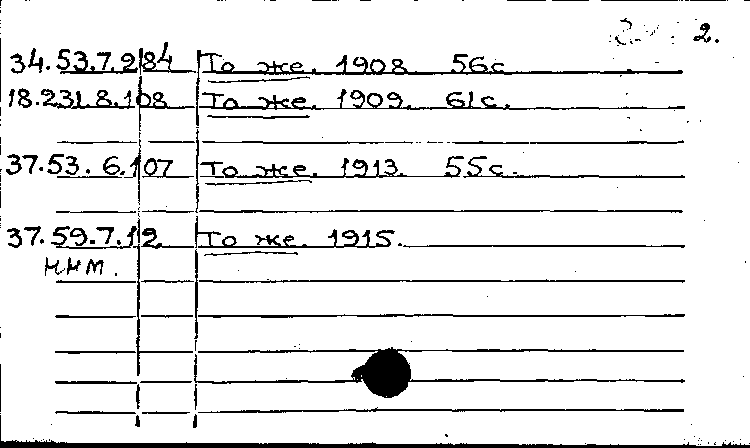 2.
34.53.7.284 То же. 1908 56с
18.231.8.108 То же. 1909. 61с.
37.53.6.107 То же. 1913. 55с.
37.59.7.12. То же. 1915.